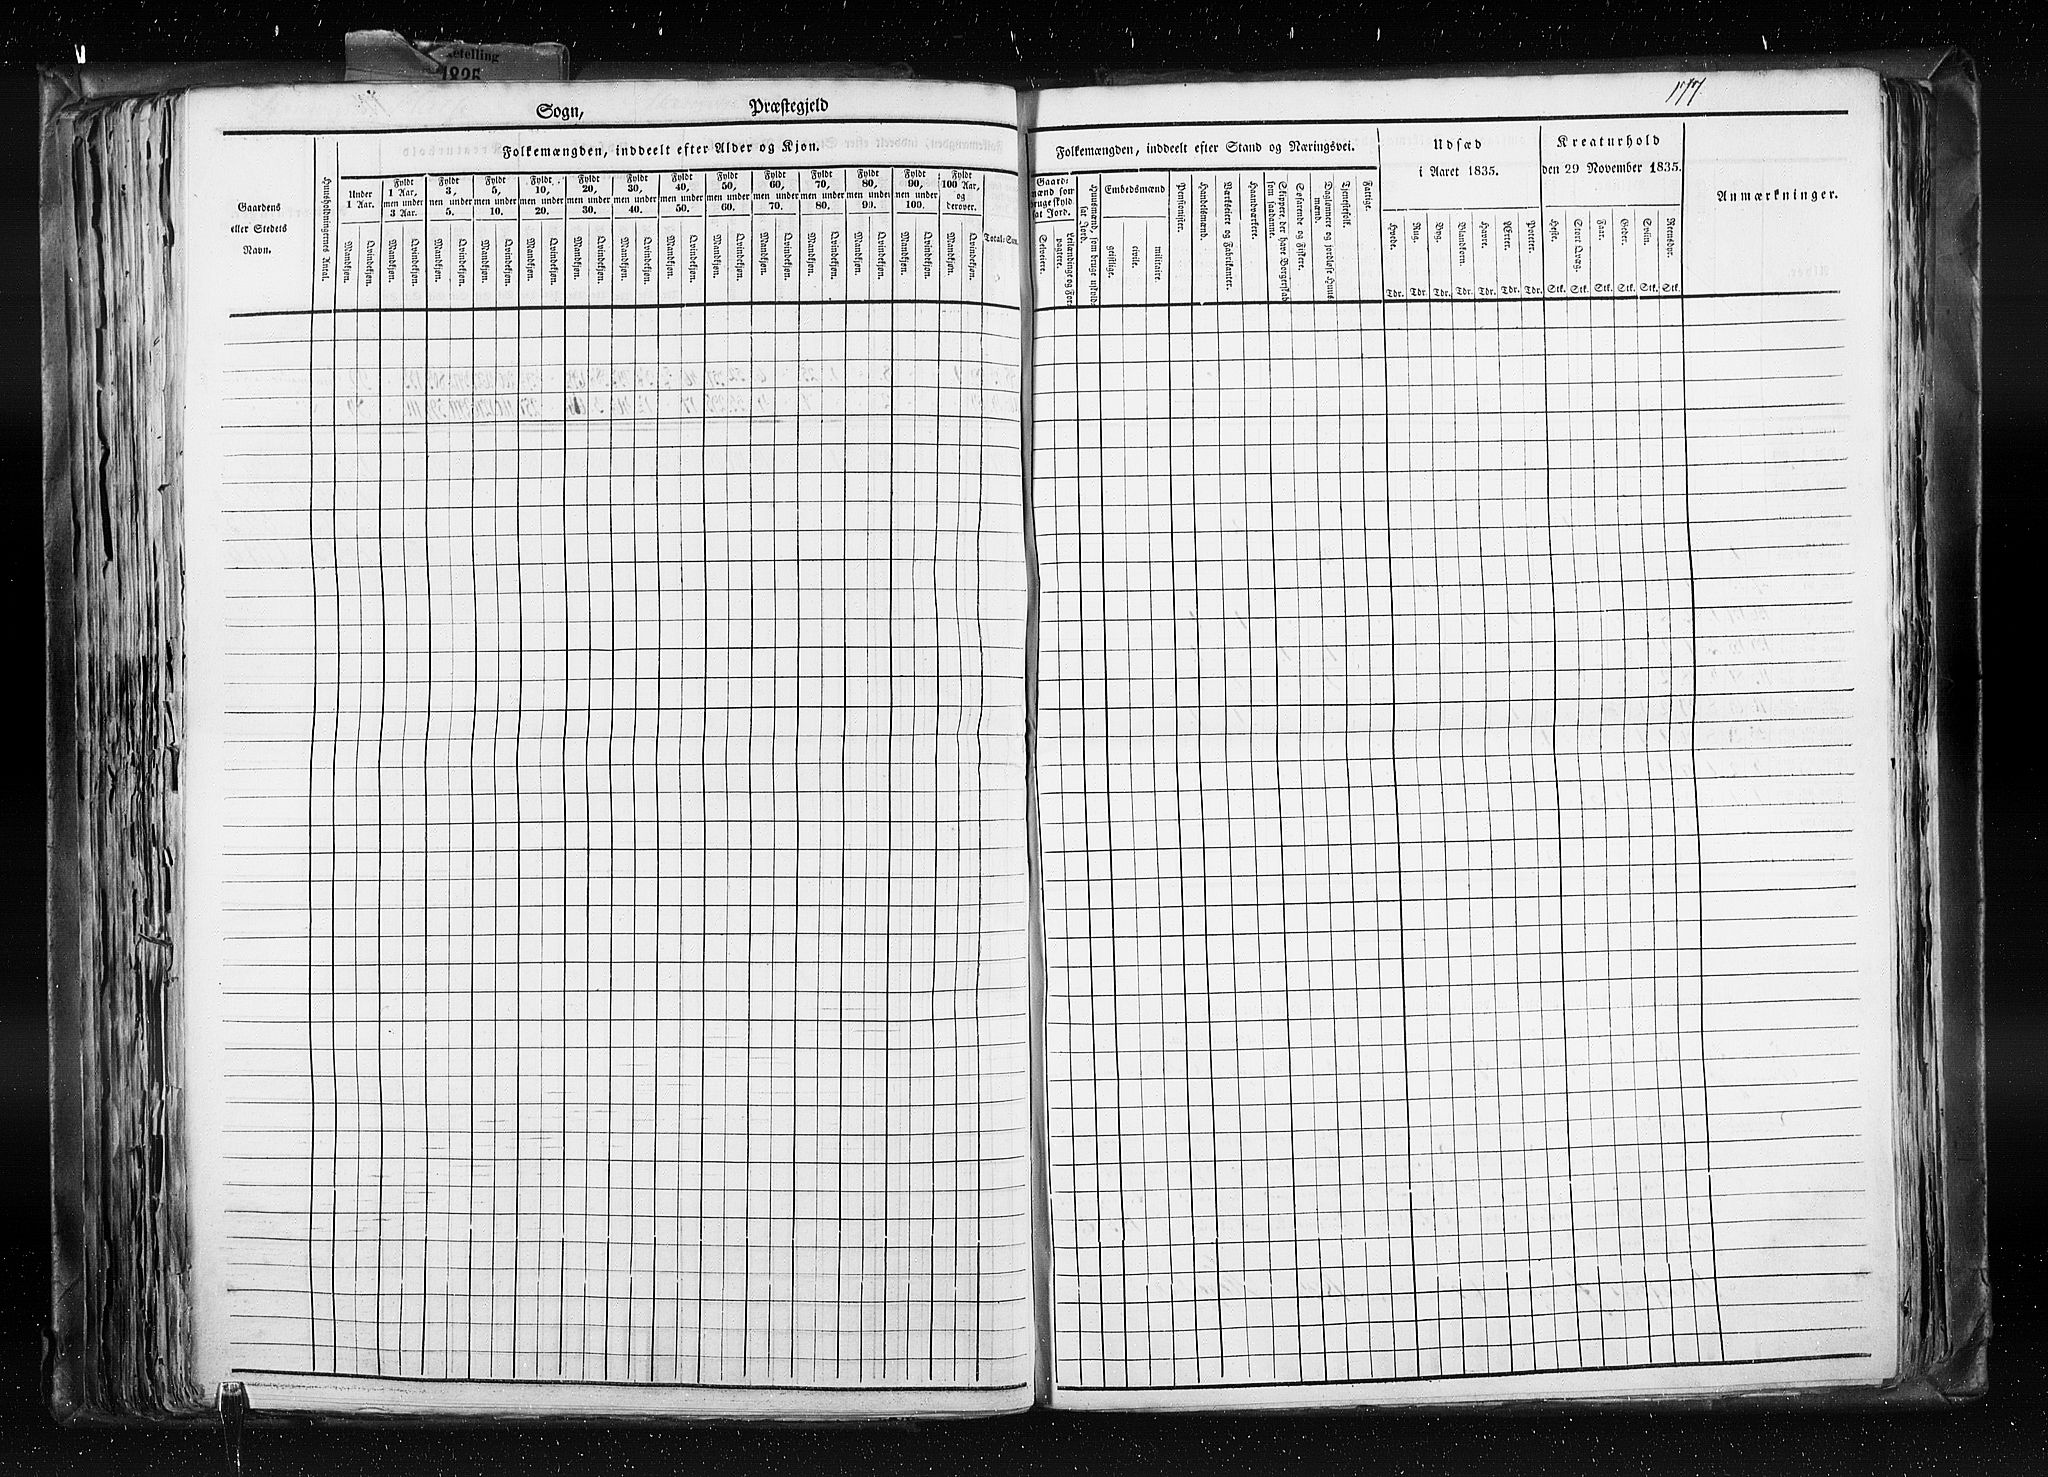 ketelling
1835
177
Sogn, Præstegjeld
Gaardens eller Stedets Navn.
Huusholdningernes Antal.
Folkemængden, inddeelt efter Alder og Kjøn.
Under 1 Aar.
Fyldt 1 Aar, men under 3 Aar.
Fyldt 3, men under 5.
Fyldt 5, men under 10.
Fyldt 10, men under 20.
Fyldt 20, men under 30.
Fyldt 30, men under 40.
Fyldt 40, men under 50.
Fyldt 50, men under 60.
Fyldt 60, men under 70.
Fyldt 70, men under 80.
Fyldt 80, men under 90.
Fyldt 90, men under 100.
Fyldt 100 Aar, og derover.
Mandkjøn. Qvindekjøn. Mandkjøn. Qvindekjøn. Mandkjøn. Qvindekjøn. Mandkjøn. Qvindekjøn. Mandkjøn. Qvindekjøn. Mandkjøn. Qvindekjøn. Mandkjøn. Qvindekjøn. Mandkjøn. Qvindekjøn. Mandkjøn. Qvindekjøn. Mandkjøn. Qvindekjøn. Mandkjøn. Qvindekjøn. Mandkjøn. Qvindekjøn. Mandkjøn. Qvindekjøn. Mandkjøn. Qvindekjøn.
Total-Sum.
Folkemængden, inddeelt efter Stand og Næringsvei.
Gaardmænd som bruge skyldsat Jord.
Selveiere.
Leilændinge og Forpagtere.
Huusmænd, som bruge uskyldsat Jord.
Embedsmænd
geistlige.
civile.
militaire.
Pensionister.
Handelsmænd.
Værkseiere og Fabrikanter.
Haandværkere.
Skippere, der have Borgerskab som saadanne.
Søfarende og Fiskere.
Daglønnere og jordløse Huusmænd.
Tjenestefolk.
Fattige.
Udsæd i Aaret 1835.
Hvede. Rug. Byg. Blandkorn. Havre. Ærter. Poteter.
Tdr. Tdr. Tdr. Tdr. Tdr. Tdr. Tdr.
Kreaturhold den 29 November 1835.
Heste. Stort Qvæg. Faar. Geder. Sviin. Rensdyr.
Stk. Stk. Stk. Stk. Stk. Stk.
Anmærkninger.